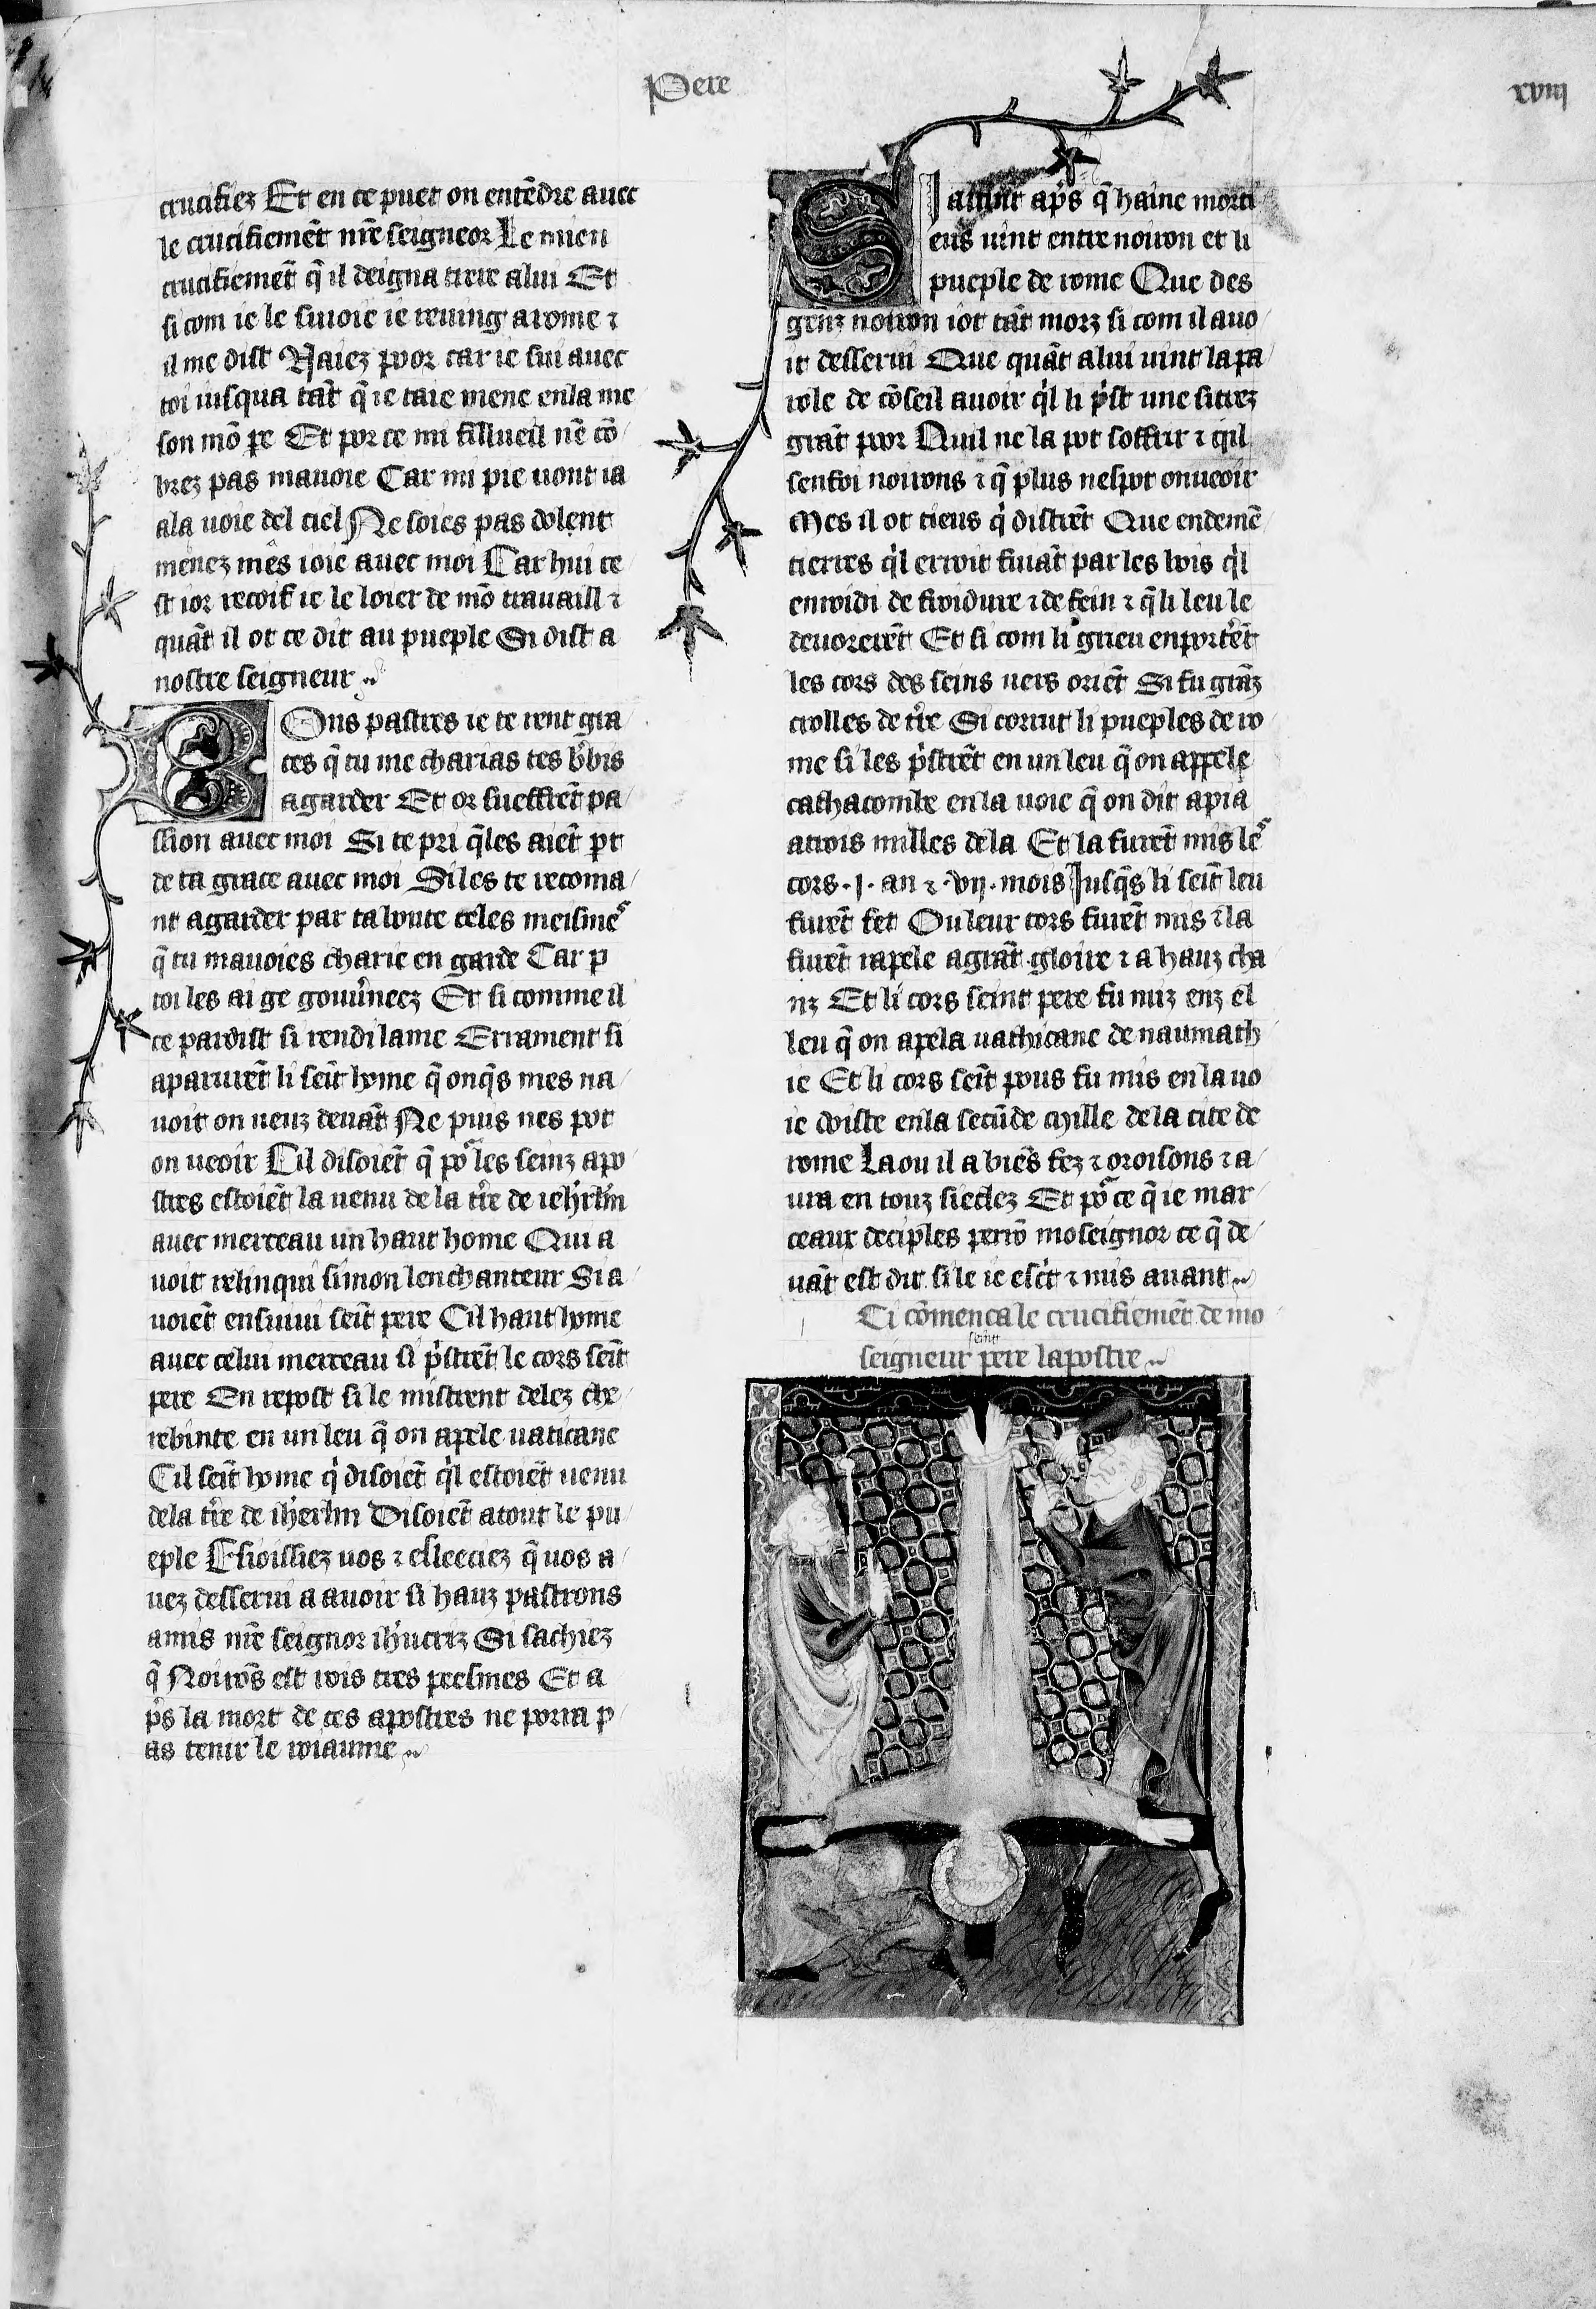 Pere
xviij
crucifiez Et en ce puet on entẽdre auec
le crucifiemẽt nr̃e seigneor Le mien
crucifiemẽt q̃ il deigna arrir a lui Et
si com ie le siuoie ie reuing a rome ⁊
il me dist Naiez poor car ie sui auec
toi iusqua tãt q̃ ie taie mene en la me
son mõ pe Et por ce mi fillueil nẽ cõ
brez pas ma uoie Car mi pie uont ia
a la uoie del ciel Ne soies pas dolent
menez mes ioie auec moi Car hui ce
st ior recoif ie le loier de mõ trauaill ⁊
quãt il ot ce dit au pueple Si dist a
nostre seigneur
Bons pastres ie te rent gra
ces q̃ tu me charias tes brbis
a garder Et or sueffrẽt pa
ssion auec moi Si te pri q̃les aiẽt pt
de ta grace auec moi Si les te recoma
nt a garder par ta bonte celes meisme
q̃ tu mauoies charie en garde Car p
toi les ai ge gouũneez Et si comme il
ce pardist si rendi lame Errament si
aparurẽt li seĩt home q̃ onq̃s mes na
uoit on ueuz deuãt Ne puis nes pot
on ueoir Cil disoiẽt q̃ por les seinz apo
stres estoiẽt la uenu de la tr̃e de ieh'rlm̃
auec merceau un haut home Qui a
uoit relinqui simon lenchanteur Si a
uoiẽt ensiuui seĩt pere Cil haut home
auec celui merceau si pristrẽt le cors seĩt
pere En repost si le mistrent delez the
rebinte en un leu q̃ on apele uaticane
Cil seĩt home qi disoiẽt qil estoiẽt uenu
de la tr̃e de ih'erlm Disoiẽt a tout le pu
eple Esioissiez uos ⁊ esleeciez q̃ uos a
uez desserui a auoir si hauz pastrons
amis nr̃e seignor ih'ucriz Si sachiez
q̃ Noirõs est rois tres pesmes Et a
p̃s la mort de ces apostres ne porra p
as tenir le roiaume
SI auint ap̃s q̃ haine morti
eus uint entre noiron et li
pueple de rome Que des
genz noiron i ot tãt morz si com il auo
it desserui Que quãt a lui uint la pa
role de cõseil auoir qil li prist une si trez
grãt poor Quil ne la pot soffrir ⁊ qil
senfoi noirons ⁊ q̃ plus nes pot on ueoir
Mes il ot ciens qi distrẽt Que endemẽ
tierres qil erroit fuiãt par les bois qil
enroidi de froidure ⁊ de fein ⁊ q̃ li leu le
deuorerẽt Et si com li grieu enporterẽt
les cors des seins uers oriẽt Si fu grãz
crolles de tr̃e Si corrut li pueples de ro
me si les pristrẽt en un leu q̃ on appele
cathacombe en la uoie q̃ on dit apia
a trois milles de la Et la furẽt mis le
cors .j. an ⁊ .vij. mois Jusq̃s li seĩt leu
furẽt fet Ou leur cors furẽt mis ⁊ la
furẽt rapele a grãt gloire ⁊ a hauz cha
nz Et li cors seint pere fu miz enz el
leu q̃ on apela uathicane de naumath
ie Et li cors seĩt pous fu mis en la uo
ie doiste en la secũde mille de la cite de
rome La ou il a biẽs fez ⁊ oroisons ⁊ a
ura en touz siecles Et por ce q̃ ie mar
ceaux deciples perrõ mo seignor ce q̃ de
uãt est dit si le ie escit ⁊ mis auant
Ci cõmenca le crucifiemẽt de mo
seigneur seint pere lapostre